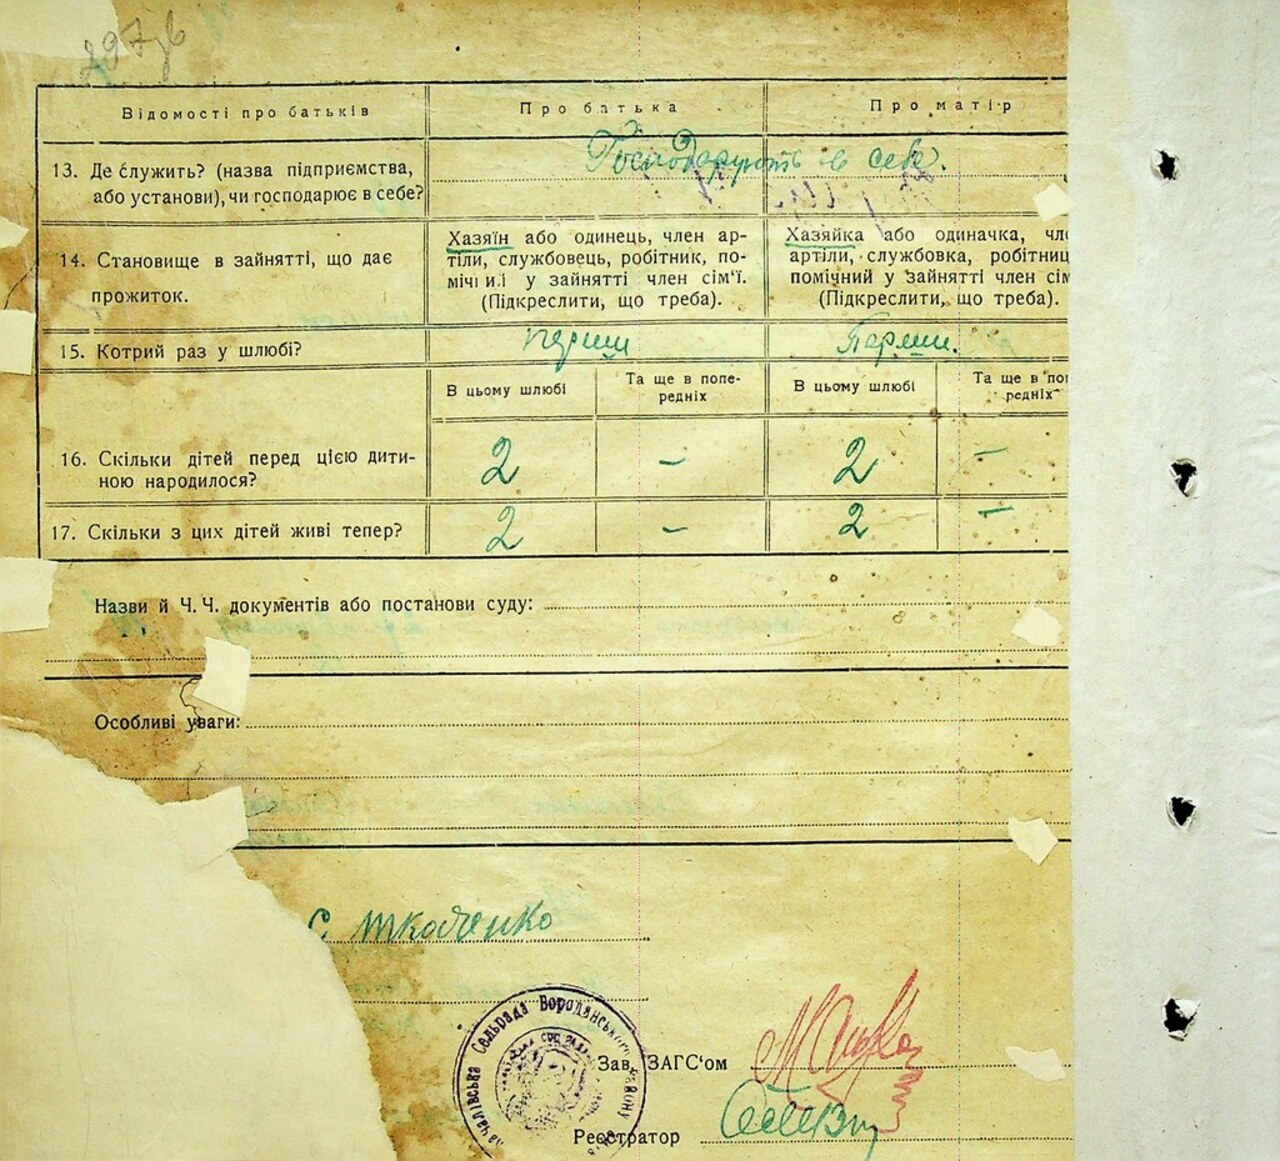 297зв
Відомості про батьків
Про батька
Про матір
13. Де служить? (назва підприємства,
або установи), чи господарює в себе?
Господарують в себе.
14. Становище в зайнятті, що дає
прожиток.
Хазяїн або одинець, член ар-
тіли, службовець, робітник, по-
мічний у зайнятті член сім'ї.
(Підкреслити, що треба).
Хазяйка або одиначка, чле
артіли, службовка, робітниц
помічний у зайнятті член сім
(Підкреслити, що треба).
15. Котрий раз у шлюбі?
перши
Перши.
В цьому шлюбі
Та ще в попе-
редніх
В цьому шлюбі
Та ще в поп
редніх
16. Скільки дітей перед цією дити-
ною народилося?
2
–
2
–
17. Скільки з цих дітей живі тепер?
2
–
2
–
Назви й Ч. Ч. документів або постанови суду:
Особливі уваги:
С. Ткаченко
Сельрада Вороданського району
Зав. ЗАГС'ом
Реєстратор